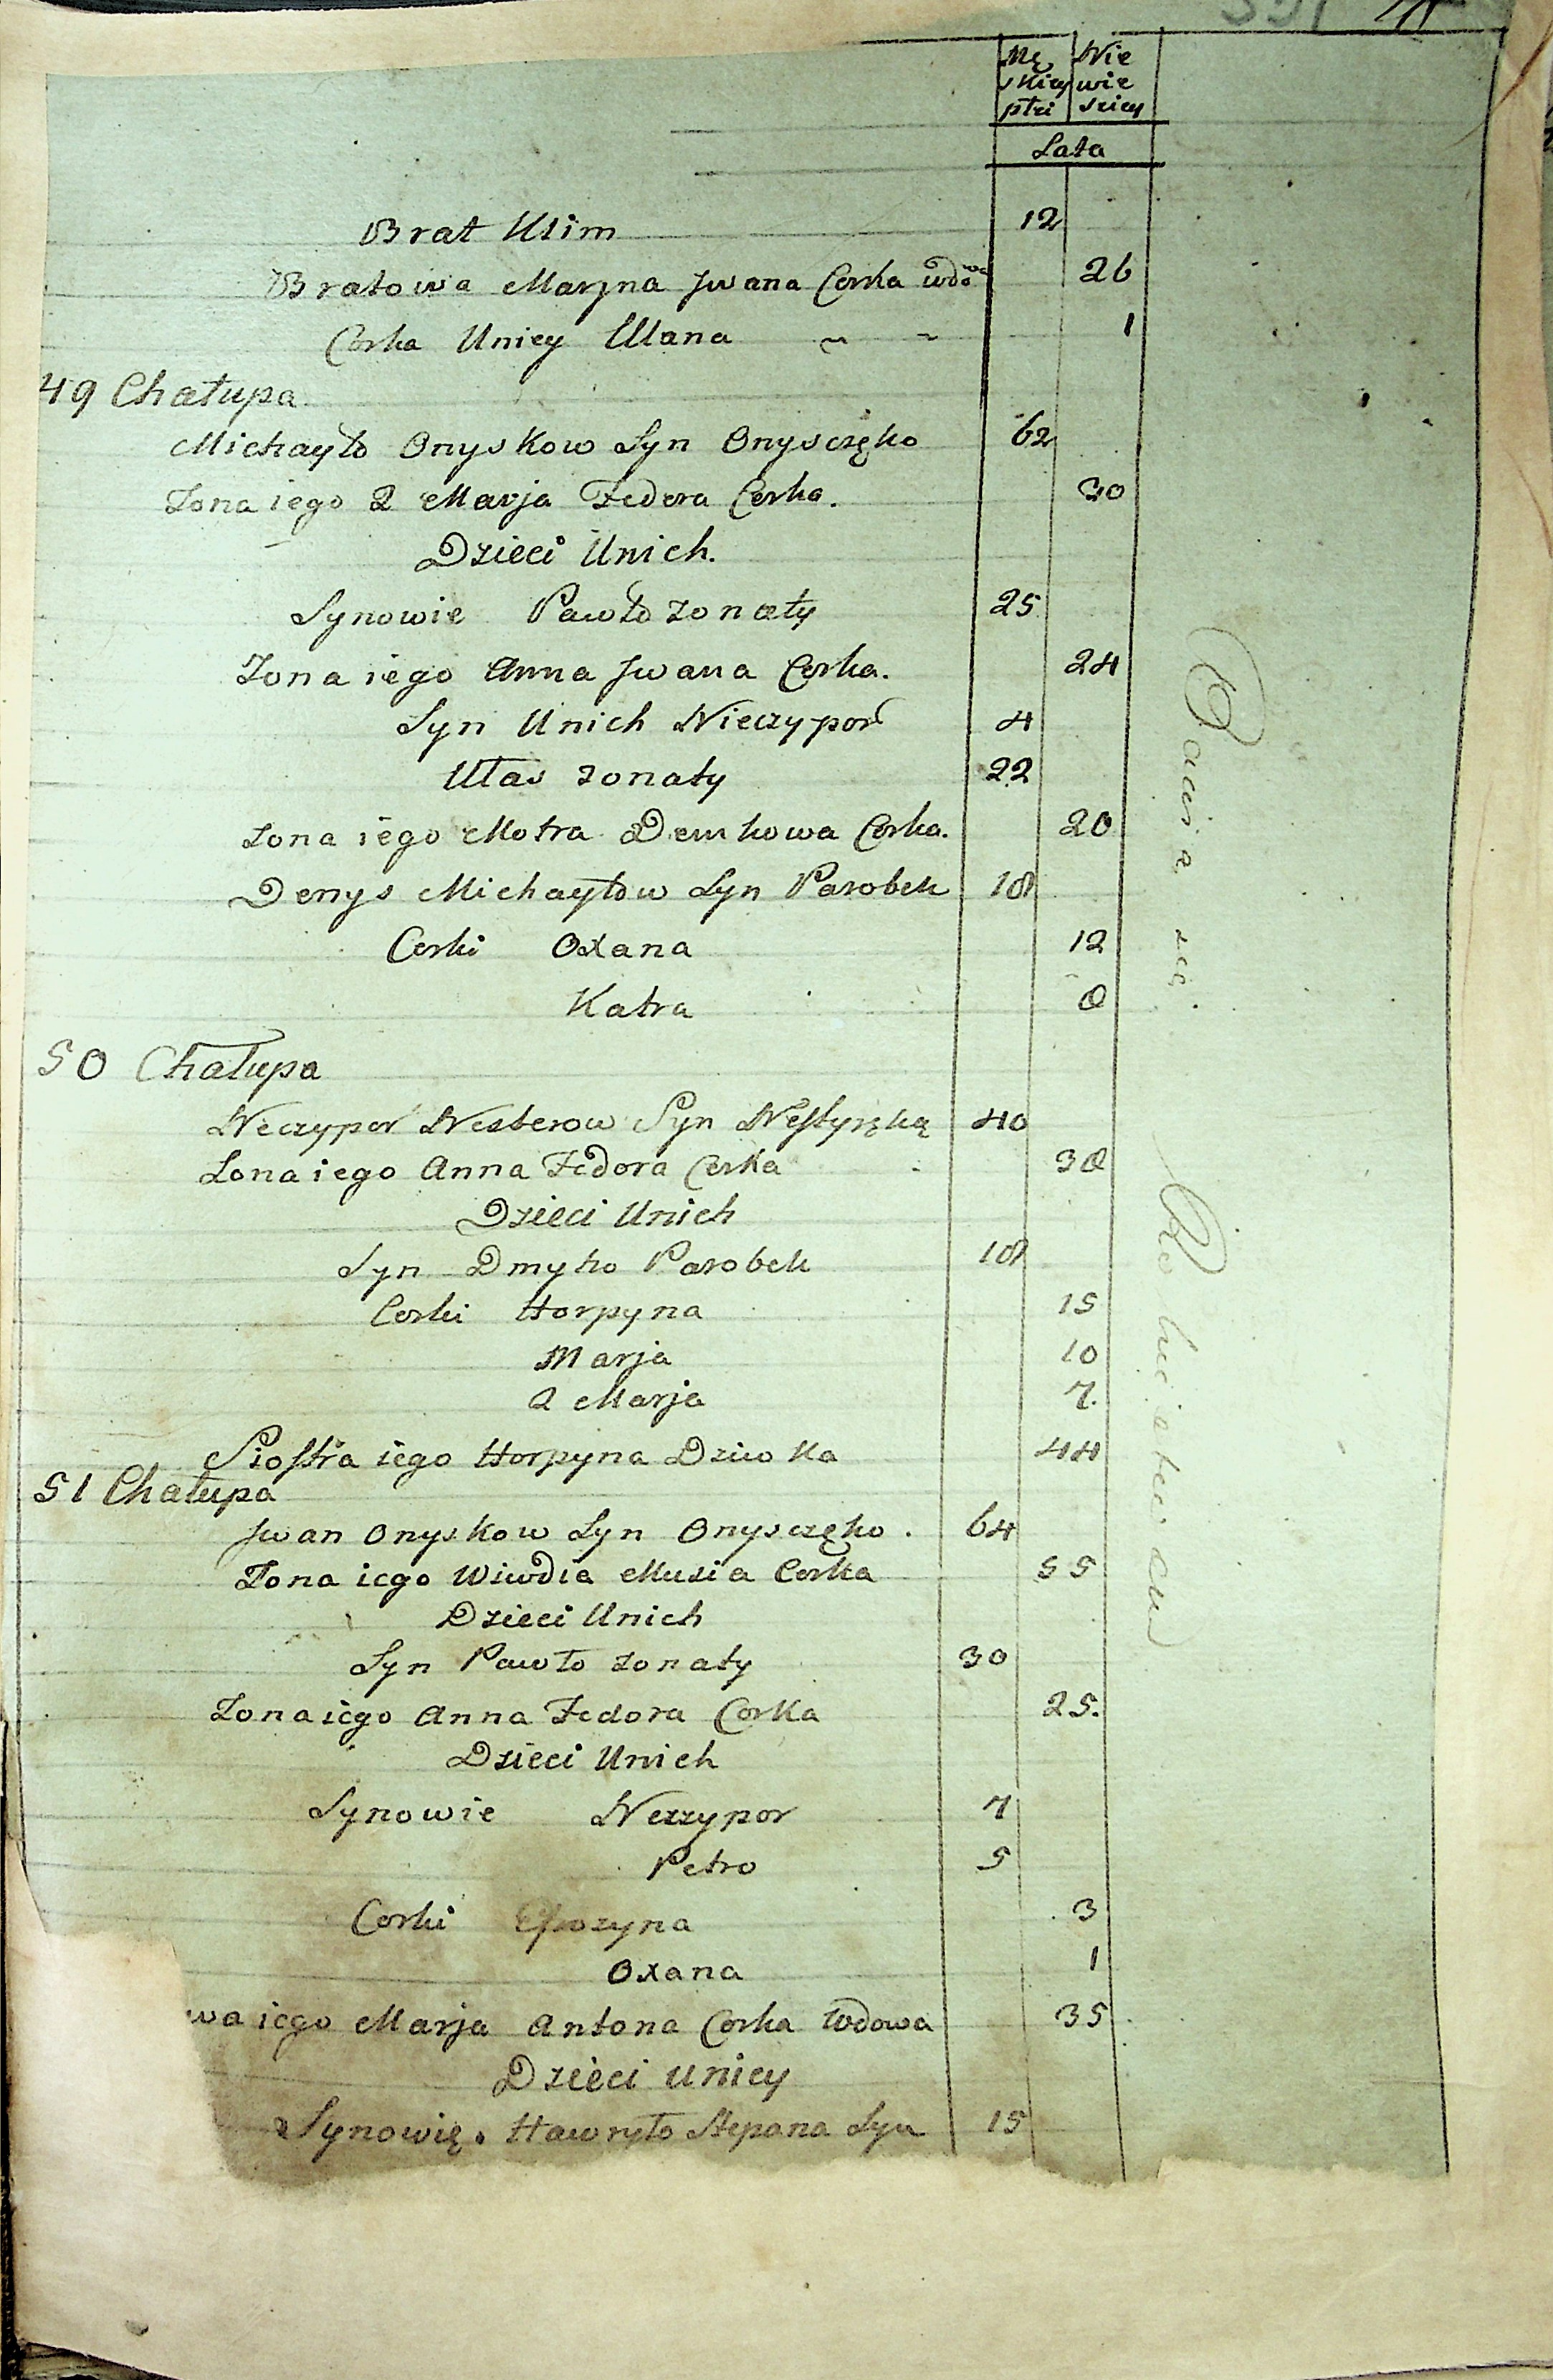 Mę Nie
skiey wie
płci sciey
Lata
Brat Klim 12
Bratowa Maryna Jwana Corka wdowa 26
Corka Uniey Ulana 1
49 Chałupa
Michayło Onyskow Syn Onysczęko 62
Zona iego 2 Marja Fedora Corka. 30
Dzieci Unich.
Synowie Pawło zonaty 25
Zona iego Anna Jwana Corka. 24
Syn Unich Nieczypor 4
Ułas zonaty 22
Zona iego Motra Demkowa Corka. 20
Denys Michayłow Syn Parobek 18
Corki Oxana 12
Katra 8
50 Chałupa
Neczypor Nesterow Syn 40
Zona iego Anna Fedora Corka 38
Dzieci Unich
Syn Dmytro Parobek 18
Corki Horpyna 15
Marja 10
2 Marja 7.
Siostra iego Horpyna Dziwka 44
51 Chałupa
Jwan Onyskow Syn Onysczęko. 64
Zona iego Wiwdia Musia Corka 55
Dzieci Unich
Syn Pawło zonaty 30
Zona iego Anna Fedora Corka 25.
Dzieci Unich
Synowie Neczypor 7
Petro 5
Corki Efrozyna 3
Oxana 1
wa iego Marja Antona Corka Wdowa 35
Dzieci uniey
Synowię. Hawryło Stepana Syn 15